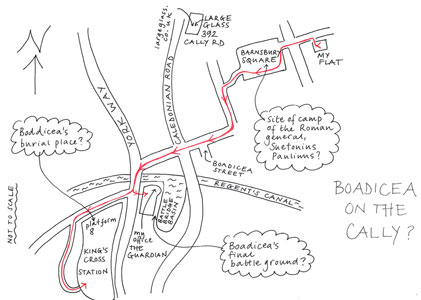 N
largeglass.
co.uk
LARGE
GLASS
392
CALLY RD
BARNSBURY
SQUARE
MY
FLAT
YORK WAY
CALEDONIAN ROAD
Boddicea's
burial place?
Site of camp
of the Roman
general,
Suetonius
Paulinus?
BOADICEA
STREET
REGENT'S CANAL
BOADICEA
ON THE
CALLY?
NOT TO SCALE
platform
8
KING'S
CROSS
STATION
BATTLE
BRIDGE
BASIN
my
office
THE
GUARDIAN
Boadicea's
final
battle ground?